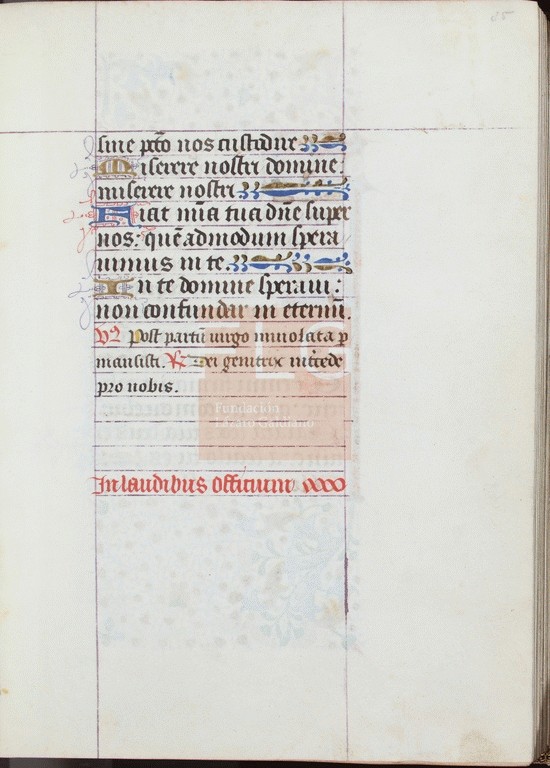 35
sine pctō nos custodire
Miserere nostri domine:
miserere nostri
Fiat mīa tua dn̄e super
nos: quēadmodum spera
uimus in te.
In te domine speraui:
non confundar in eternū.
V̄s Post partū uirgo inuiolata p
mansisti. R̄ Dei genitrix intēcede
pro nobis.
Fundación
Lázaro Galdiano
In laudibus officium